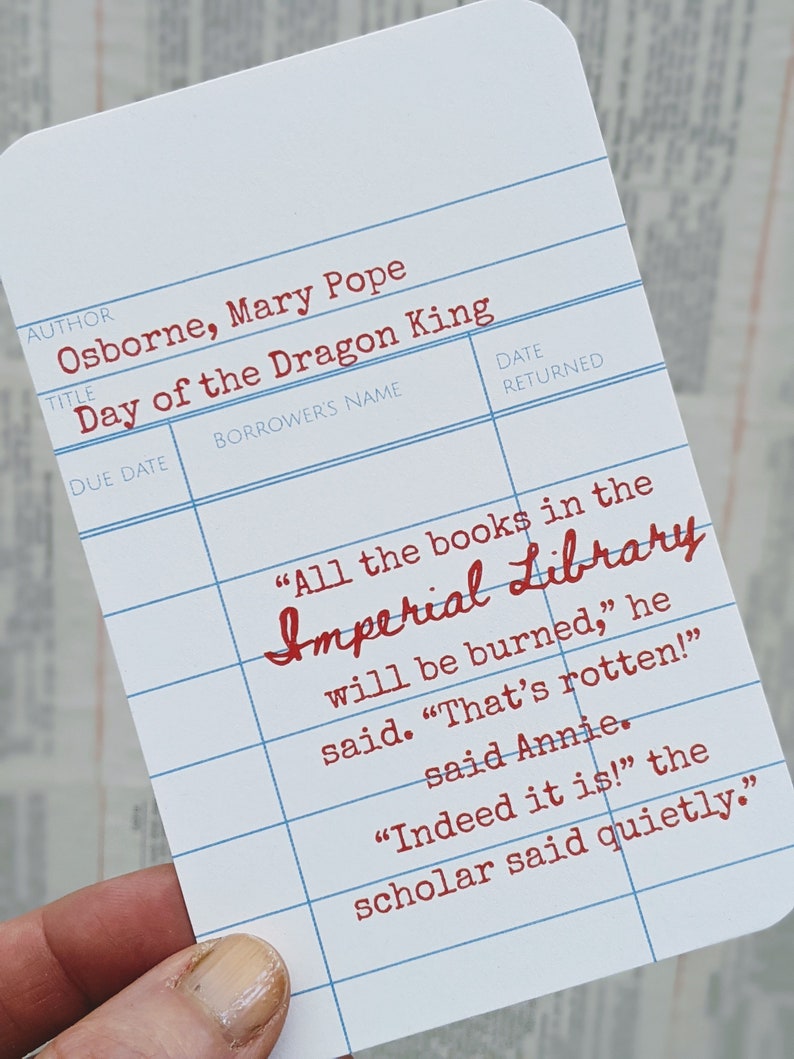 AUTHOR
Osborne, Mary Pope
TITLE
Day of the Dragon King
DUE DATE
BORROWER'S NAME
DATE
RETURNED
“All the books in the
Imperial Library
will be burned,” he
said. “That’s rotten!”
said Annie.
“Indeed it is!” the
scholar said quietly.”